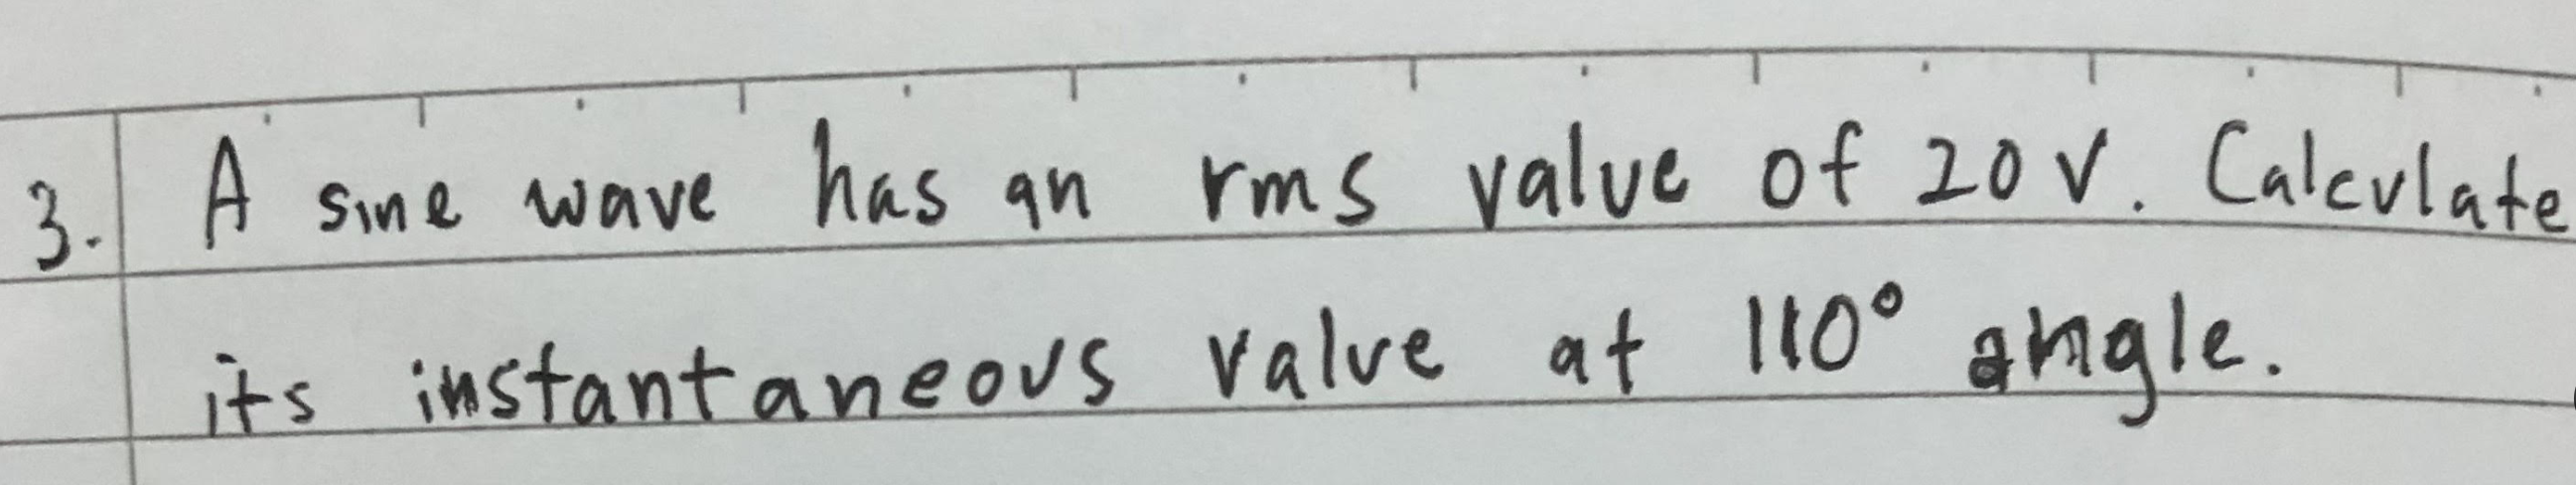 3. A sine wave has an rms value of 20 V. Calculate
its instantaneous value at 110° angle.